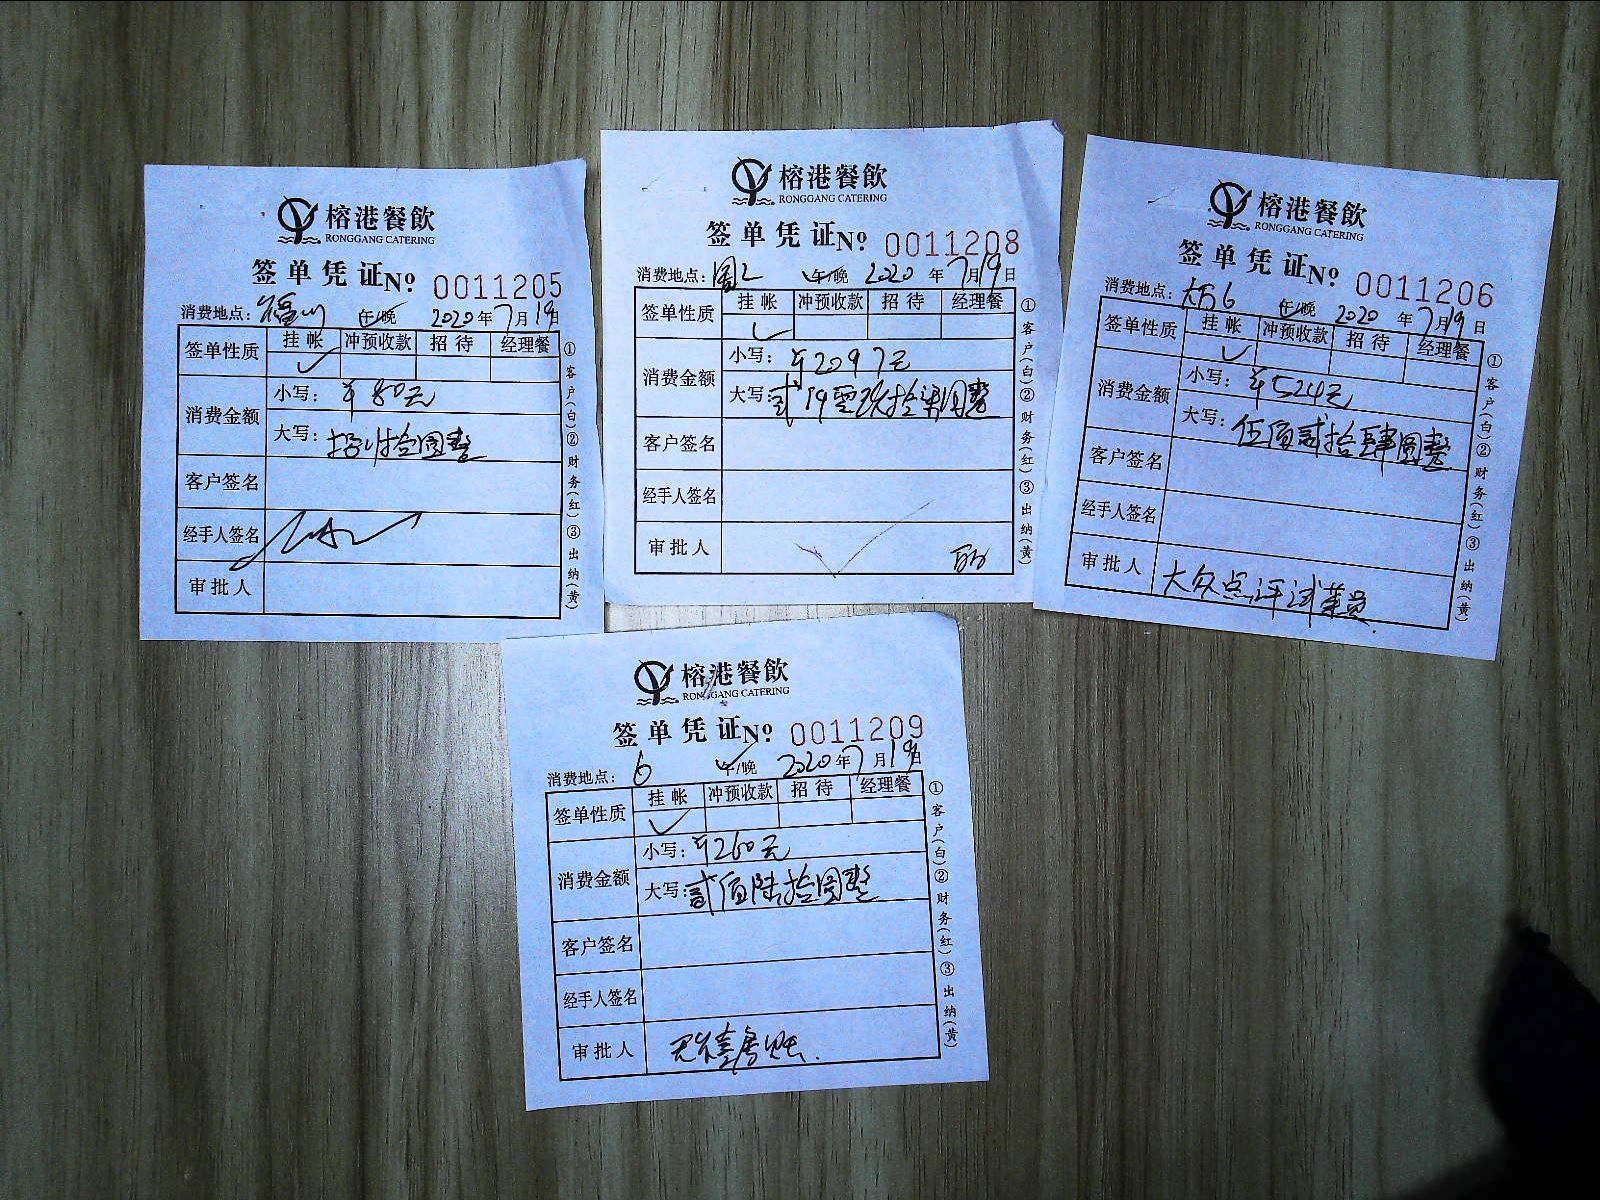 榕港餐飲
RONGGANG CATERING
签单凭证 №. 0011205
消费地点: 福州 午/晚 2020年7月19日
签单性质 挂帐 冲预收款 招待 经理餐
消费金额
小写: ¥80元
大写: 捌拾圆整
客户签名
经手人签名
审批人
①客户(白)②财务(红)③出纳(黄)
榕港餐飲
RONGGANG CATERING
签单凭证 №. 0011208
消费地点: 围2 午/晚 2020年7月19日
签单性质 挂帐 冲预收款 招待 经理餐
消费金额
小写: ¥2097元
大写: 贰仟零玖拾柒圆整
客户签名
经手人签名
审批人
①客户(白)②财务(红)③出纳(黄)
榕港餐飲
RONGGANG CATERING
签单凭证 №. 0011206
消费地点: 大厅6 午/晚 2020年7月19日
签单性质 挂帐 冲预收款 招待 经理餐
消费金额
小写: ¥524元
大写: 伍佰贰拾肆圆整
客户签名
经手人签名
审批人 大众点评试菜员.
①客户(白)②财务(红)③出纳(黄)
榕港餐飲
RONGGANG CATERING
签单凭证 №. 0011209
消费地点: 6 午/晚 2020年7月19日
签单性质 挂帐 冲预收款 招待 经理餐
消费金额
小写: ¥260元
大写: 贰佰陆拾圆整
客户签名
经手人签名
审批人
①客户(白)②财务(红)③出纳(黄)